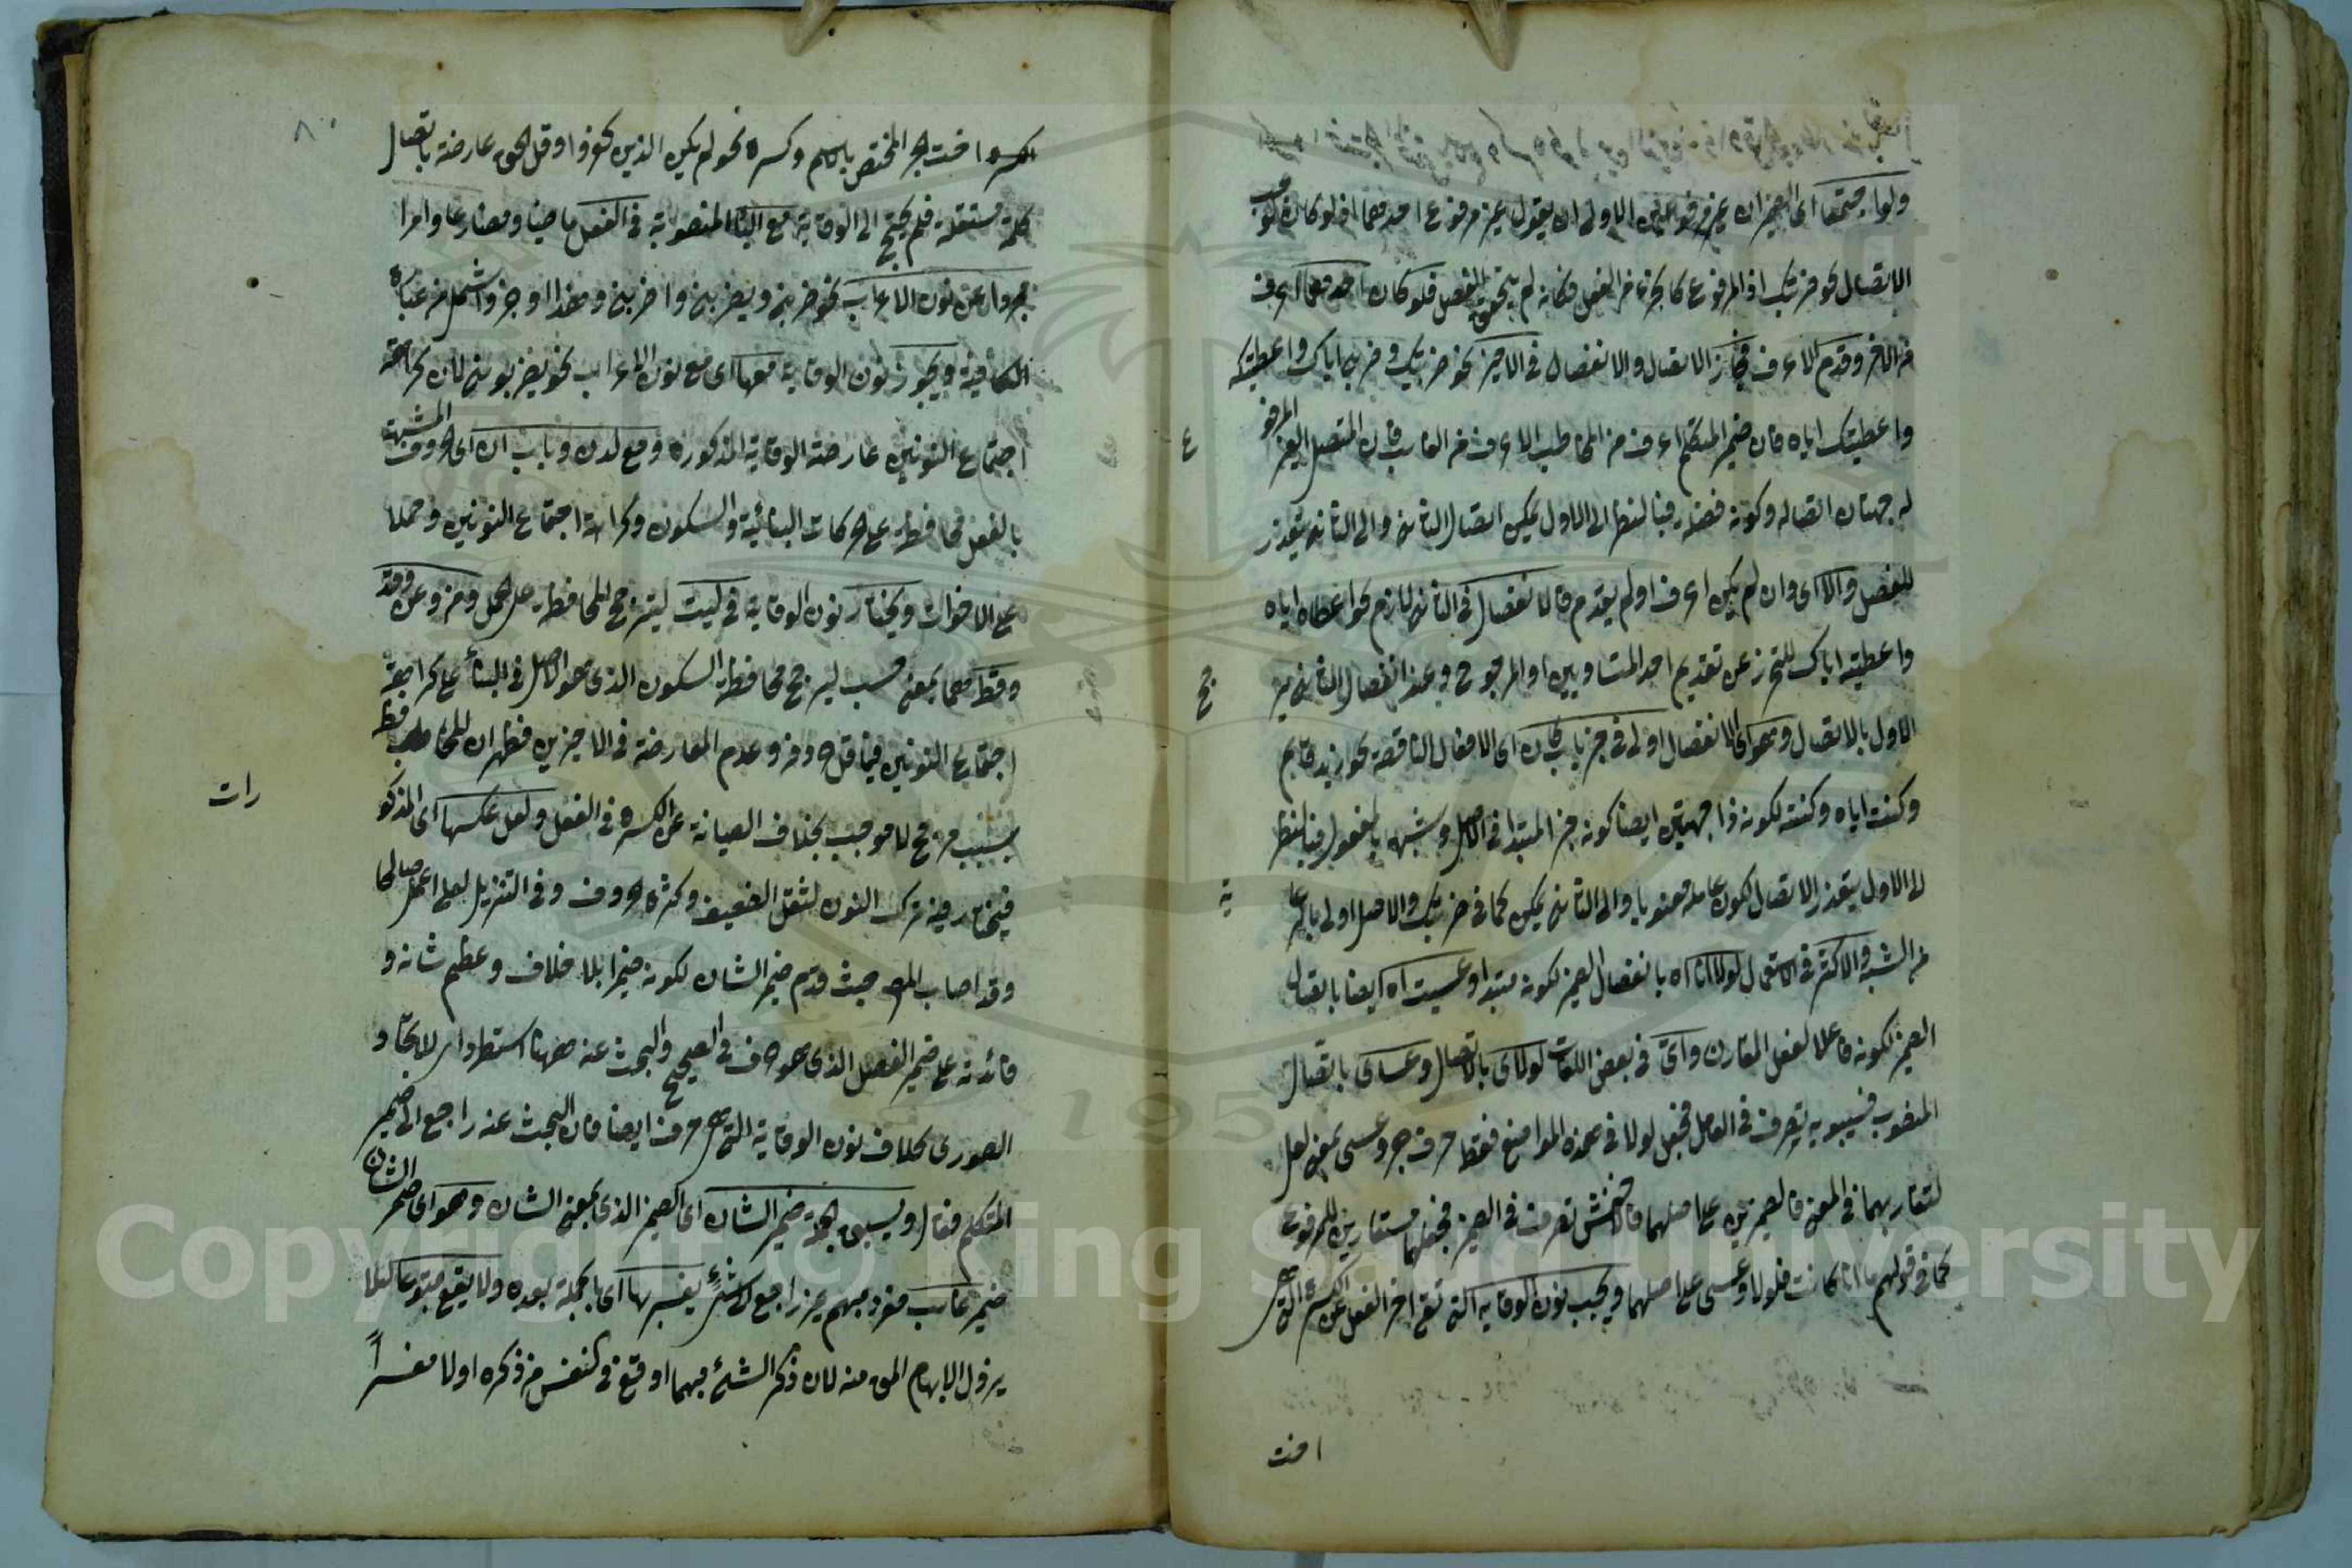 ولو اجتمعا اى الضميران غير مرفوعين الاولى ان يقول غير مرفوع احدهما اذ لو كان وجب
الاتصال نحو ضربتك اذ المرفوع كالجزء من الفعل فكانه لم يتحقق الفصل فلو كان احدهما اعرف
من الاخر وقدم الاعرف فيجاز الاتصال والانفصال فى الاخير نحو ضربيك وضربى اياك واعطيتكه
واعطيتك اياه فان ضمير المتكلم اعرف من المخاطب الاعرف من الغائب فان المتصل الغير المرفوع
له جهتان اتصاله وكونه فضلة فبالنظر الى الاول يمكن اتصال الثانى والى الثانى يتعذر
للفصل والا اى وان لم يكن اعرف او لم يقدم فالانفصال فى الثانى لازم نحو اعطاه اياه
واعطيته اياك للتحرز عن تقديم احد المتساويين او المرجوح وعند انفصال الثانى يرجح
الاول بالاتصال وهو اى الانفصال اولى فى خبر باب كان اى الافعال الناقصة نحو زيد قائم
وكنت اياه وكنته لكونه ذا جهتين ايضا كونه خبر المبتدا فى الاصل وشبهه بالمفعول فبالنظر
الى الاول يتعذر الاتصال لكون عامله معنويا والى الثانى يمكن كما فى ضربتك والاصل اولى بالرعاية
من الشبه والاكثر فى الاستعمال لولا انا اه بانفصال الضمير لكونه مبتدا وعسيت اه ايضا باتصال
الضمير لكونه فاعلا لفعل المقارن واتى فى بعض اللغات لولاى بالاتصال وعساى باتصال
المنصوب فسيبويه يتصرف فى العامل فجعل لولا فى هذه المواضع فقط حرف جر وعسى بمعنى لعل
لتقاربهما فى المعنى فالضميرين على اصلهما فالاخفش تصرف فى الضمير فجعلهما مستعارين للمرفوع
كما فى قولهم ما انا كانت فلولا وعسى على اصلهما ويجب نون الوقاية التى تقى اخر الفعل عن الكسرة التى هى
اخت
الكسرة اخت الجر المختص بالاسم وكسرة نحو لم يكن الذين كفروا وقل الحق عارضة باتصال
كلمة مستقلة فلم يحتج الى الوقاية مع الياء المنصوبة فى الفعل ماضيا ومضارعا وامرا
مجردا عن نون الاعراب نحو ضربنى ويضربنى واضربنى وهذا اوجز واشمل من عبارة
الكافية ويجوز نون الوقاية معها اى مع نون الاعراب نحو يضربوننى لان كراهة
اجتماع النونين عارضة الوقاية المذكورة ومع لدن وباب ان اى الحروف المشبهة
بالفعل محافظة على الحركات البنائية والسكون وكراهة اجتماع النونين وحملا
على الاخوات ويختار نون الوقاية فى ليت ليترجح المحافظة على الحمل ومن وعن وقد
وقط هما بمعنى حسب ليرجح محافظة السكون الذى هو الاصل فى البناء على كراهة
اجتماع النونين فيما قل حروفه وعدم المعارضة فى الاخيرين فظهر ان للمحافظة
بسبب مرجح لا موجب بخلاف الصيانة عن الكسرة فى الفعل ولعل عكسها اى المذكورات
فيختار فيه ترك النون لثقل التضعيف وكثرة الحروف وفى التنزيل لعلى اعمل صالحا
وقد اصاب المص حيث قدم ضمير الشان لكونه ضميرا بلا خلاف وعظم شانه و
فائدته على ضمير الفصل الذى هو حرف فى الصحيح والبحث عنه ههنا استطراد للاتحاد
الصورى بخلاف نون الوقاية التى هى حرف ايضا فان البحث عنه راجع الى ضمير
المتكلم فقال ويسبق الجملة ضمير الشان اى الضمير الذى بمعنى الشان وهو اى ضمير الشان
ضمير غائب مفرد مبهم غير راجع الى شئ يفسر بها اى بالجملة بعده ولا يقع متبوعا لئلا
يزول الابهام المق منه لان ذكر الشئ مبهما اوقع فى النفس من ذكره اولا مفسرا